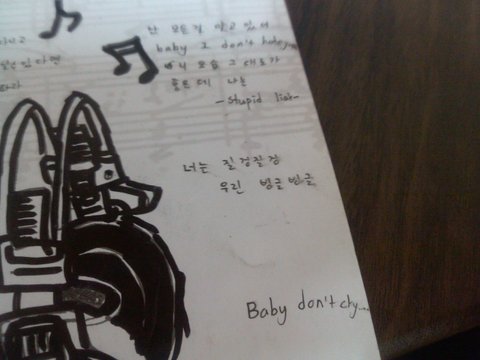 난 모든걸 알고 있어
baby I don't
니 모습 그대로가
좋은데 나는
- stupid liar -
너는 질겅질겅
우린 빙글빙글
Baby don't cry...